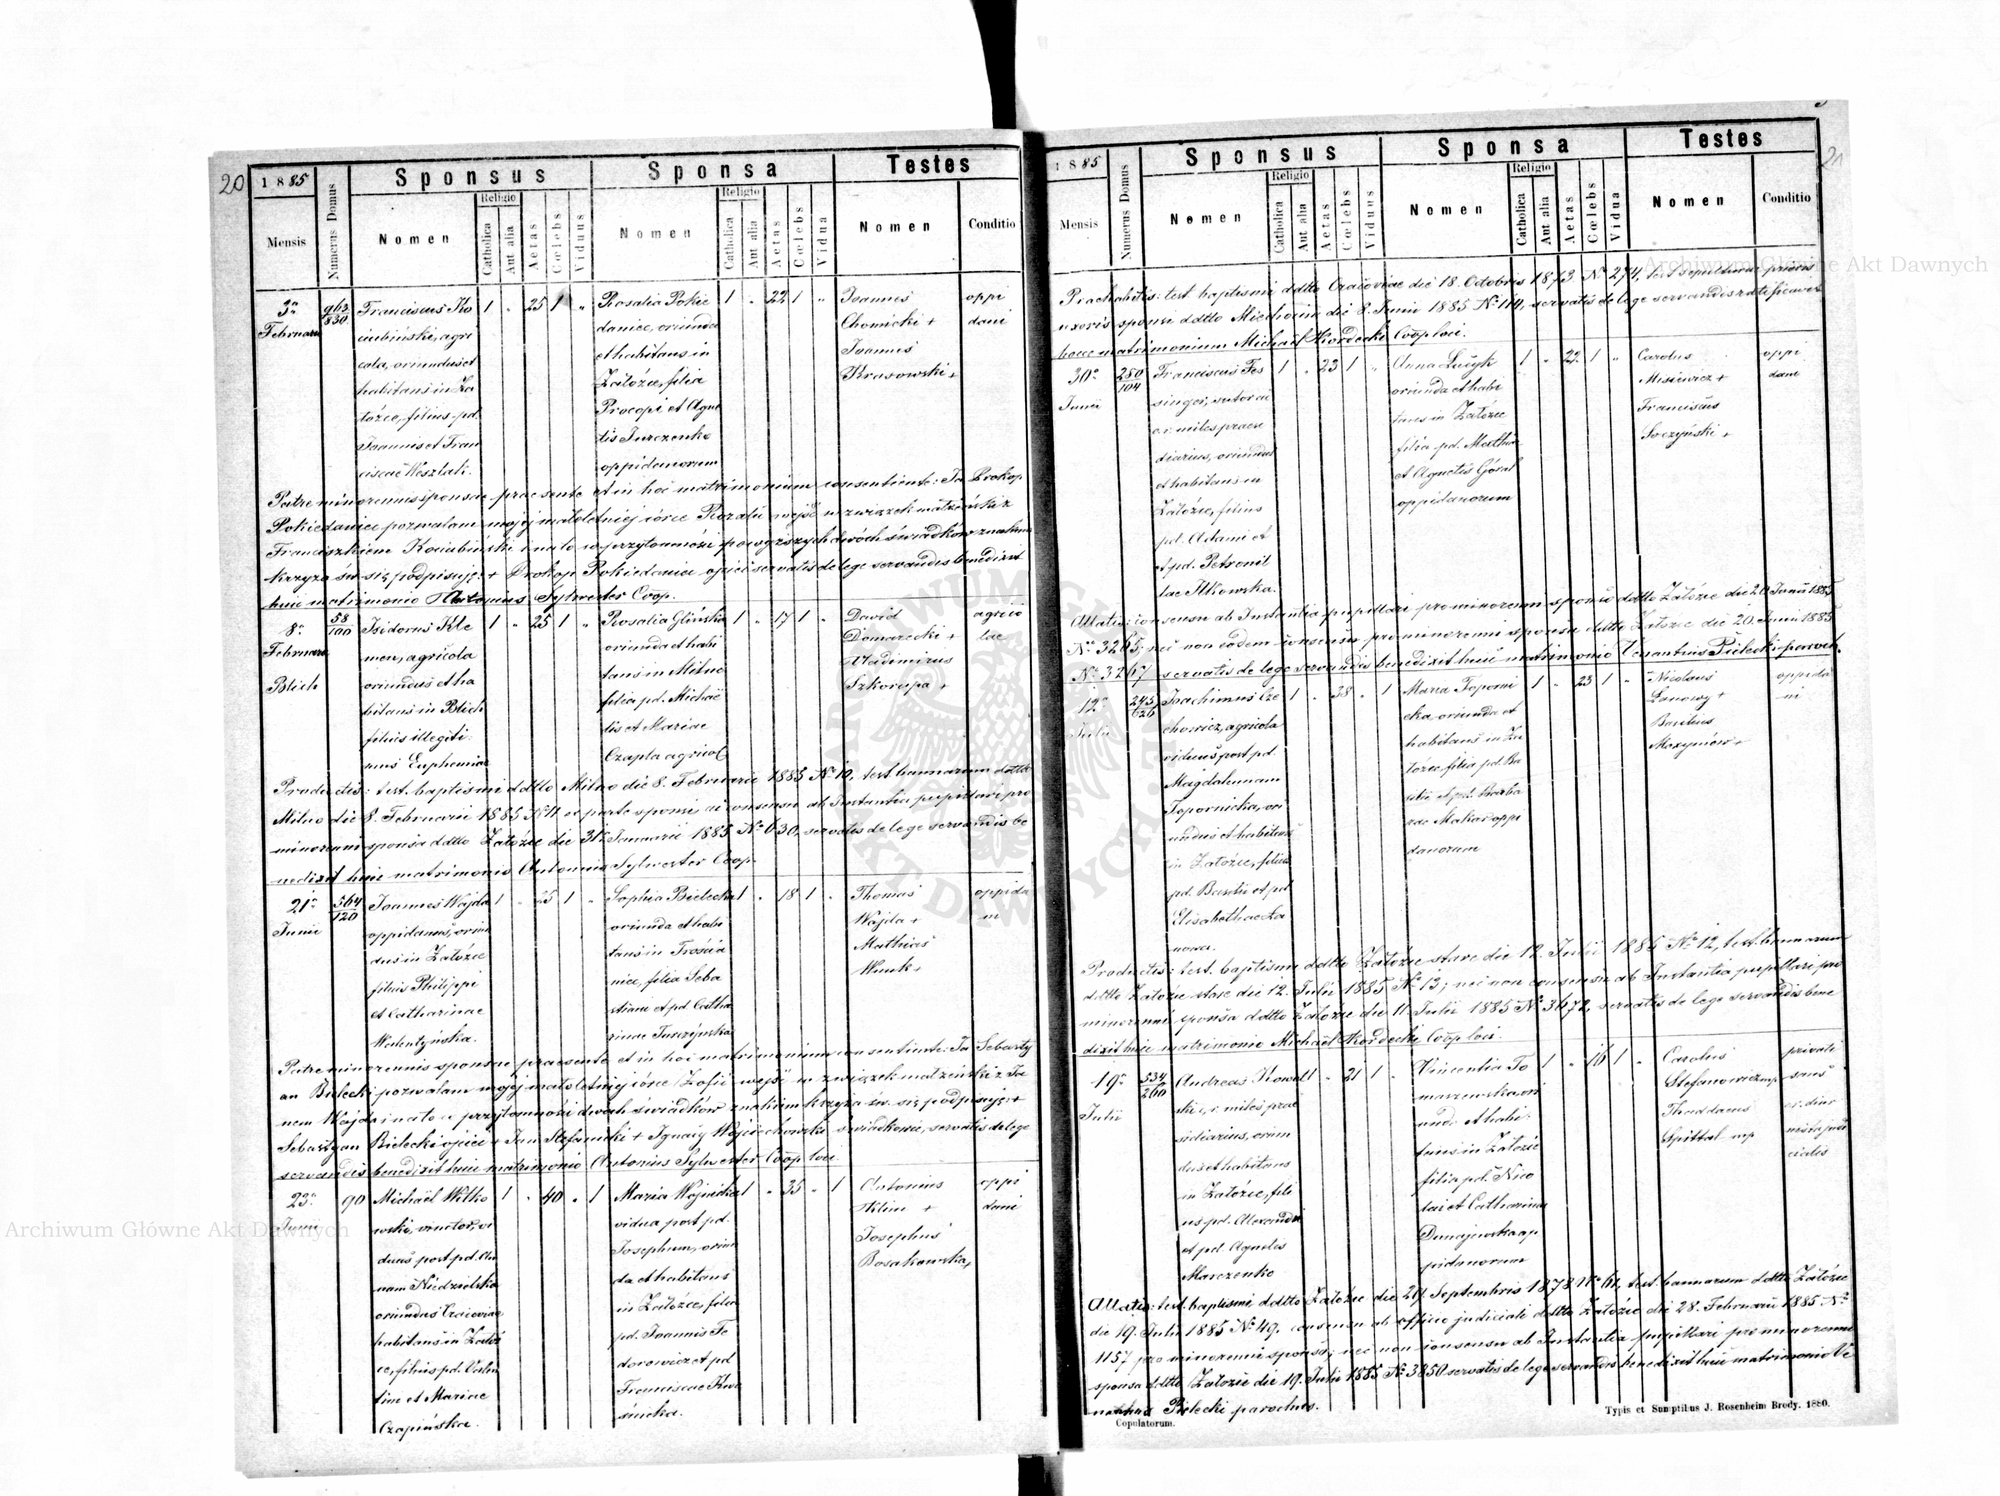 20
1885
Mensis
Numerus Domus
Sponsus
Nomen
Religio
Catholica
Aut alia
Aetas
Cœlebs
Viduus
Sponsa
Nomen
Religio
Catholica
Aut alia
Aetas
Cœlebs
Vidua
Testes
Nomen
Conditio
3a
Februarii
830
Franciscus Ko
ciubiński, agri
cola, oriundus et
habitans in Za
łoźce, filius pd.
Joannis et Fran
ciscae
1 " 25 1 "
Rosalia Pokie
daniec, oriunda
et habitans in
Załoźce, filia
Procopi et Agne
tis Jurczenko
oppidanorum
1 " 22 1 "
Joannes
Chomicki +
Joannes
Krasowski +
oppi
dani
Patre minorennis sponsae praesente et in hoc matrimonium consentiente: Ja Prokop
Pokiedaniec pozwalam mojej małoletniej córce Rozalii wejść w związek małżeński z
Franciszkiem Kociubiński i na to w przytomności powyższych dwóch świadków znakiem
krzyża św. się podpisuję: + Prokop Pokiedaniec ojciec servatis de lege servandis benedixit
huic matrimonio Antonius Sylwester Coop.
8a
Februarii
Blich
58/100
Isidorus Kle
men, agricola
oriundus et ha
bitans in Blich
filius illegiti
mus Euphemiae
1 " 25 1 "
Rosalia Glińska
oriunda et habi
tans in Milno
filia pd. Michaë
lis et Mariae
Czapla agricol
1 " 17 1 "
David
Domarecki +
Wladimirus
Szkoropa +
agrico
lae
Productis: test. baptismi ddtto Milno die 8. Februarii 1885 N. 10, test. bannorum ddtto
Milno die 8. Februarii 1885 N. 11 ex parte sponsi ac consensu ab Instantia pupillari pro
minorenni sponsa ddtto Załoźce die 31. Januarii 1885 No 630, servatis de lege servandis be
nedixit huic matrimonio Antonius Sylwester Coop.
21a
Junii
564/120
Joannes Wajda
oppidanus, oriun
dus in Załoźce
filius Philippi
et Catharinae
Walentyńska.
1 " 25 1 "
Sophia Bielecka
oriunda et habi
tans in Trościa
niec, filia Seba
stiani et pd. Catha
rinae Turczyńska
1 " 18 1 "
Thomas
Wajda +
Mathias
Wnuk +
oppida
ni
Patre minorennis sponsae praesente et in hoc matrimonium consentiente: Ja Sebasty
an Bielecki pozwalam mojej małoletniej córce Zofii wejść w związek małżeński z Ja
nem Wajda i na to w przytomności dwóch świadków znakiem krzyża św. się podpisuję: +
Sebastyan Bielecki ojciec + Jan Stefanicki + Ignacy Wojciechowski świadkowie, servatis de lege
servandis benedixit huic matrimonio Antonius Sylwester Coop. loci.
23a
Junii
90
Michaël Witko
wski, vi
duus post pd. An
nam Niedzielska
oriundus Cracoviae
habitans in Załoź
ce, filius pd. Valen
tini et Mariae
Czapińska.
1 " 40 " 1
Maria Wojnicka
vidua post pd.
Josephum, oriun
da et habitans
in Załoźce, filia
pd. Joannis Te
dorowicz et pd
Franciscae Kwa
śnicka.
1 " 35 " 1
Antonius
Klim +
Josephus
Bosakowski,
oppi
dani
21
1885
Mensis
Numerus Domus
Sponsus
Nomen
Religio
Catholica
Aut alia
Aetas
Cœlebs
Viduus
Sponsa
Nomen
Religio
Catholica
Aut alia
Aetas
Cœlebs
Vidua
Testes
Nomen
Conditio
Prachabitis: test. baptismi ddtto Cracoviae die 18. Octobris 1873. No 274, test. sepulturae prioris
uxoris sponsi ddtto Miechocin die 8. Junii 1885 N. 114, servatis de lege servandis ratificavit
hocce matrimonium Michaël Kordecki Coop. loci.
30a
Junii
280/104
Franciscus Fes
singer, sutor ac
c. r. miles praesi
diarius, oriundus
et habitans in
Załoźce, filius
pd. Adami et
pd. Petronil
lae Ilkowska.
1 " 23 1 "
Anna Łuczyk
oriunda et habi
tans in Załoźce
filia pd. Mathia
et Agnetis Góral
oppidanorum
1 " 22 1 "
Carolus
Misiewicz +
Franciscus
Soczyński +
oppi
dani
Allatis: consensu ab Instantia pupillari pro minorenni sponso ddtto Załoźce die 20 Junii 1885
No 3265; nec non eodem consensu pro minorenni sponsa ddtto Załoźce die 20. Junii 1885
No 3267 servatis de lege servandis benedixit huic matrimonio Venantius Pielecki paroch.
12a
Julii
245/626
Joachimus Cze
chowicz, agricola
viduus post pd.
Magdalenam
Topornicka, ori
undus et habitans
in Załoźce, filius
pd. Basilii et pd
Elisabethae La
nowa.
1 " 38 " 1
Maria Toporni
cka, oriunda et
habitans in Za
łoźce filia pd. Ba
silii et pd. Barba
rae Makar oppi
danorum
1 " 23 1 "
Nicolaus
Lanowy +
Basilius
Maxymów +
oppida
ni
Productis: test. baptismi ddtto Załoźce stare die 12. Julii 1885 No 12, test. bannorum
ddtto Załoźce stare die 12. Julii 1885 No 13; nec non consensu ab Instantia pupillari pro
minorenni sponsa ddtto Załoźce die 11 Julii 1885 No 3672, servatis de lege servandis bene
dixit huic matrimonio Michaël Kordecki Coop. loci.
19a
Julii
534/260
Andreas Kowal
ski, c. r. miles prae
sidiarius, oriun
dus et habitans
in Załoźce, fili
us pd. Alexandri
et pd. Agnetis
Marczenko
1 " 21 1 "
Vincentia To
maszewska, ori
unda et habi
tans in Załoźce
filia pd. Nico
lai et Catharinae
Dunajewska op
pidanorum
1 " 16 1 "
Carolus
Stefanowicz mp
Thaddaeus
Spittal mp
privati
saus
ci. diur
nista judi
cialis
Allatis: test. baptismi ddtto Załoźce die 29 Septembris 1878 No 61, test. bannorum ddtto Załoźce
die 19. Julii 1885 No 49, consensu ab officio judiciali ddtto Załoźce die 28. Februarii 1885 No
1157 pro minorenni sponso; nec non consensu ab Instantia pupillari pro minorenni
sponsa ddtto Załoźce die 19. Julii 1885 No 3850 servatis de lege servandis benedixit huic matrimonio Ve
nantius Pielecki parochus.
Copulatorum.
Typis et Sumptibus J. Rosenheim Brody. 1880.
Archiwum Główne Akt Dawnych
Archiwum Główne Akt Dawnych
ARCHIWUM GŁÓWNE AKT DAWNYCH